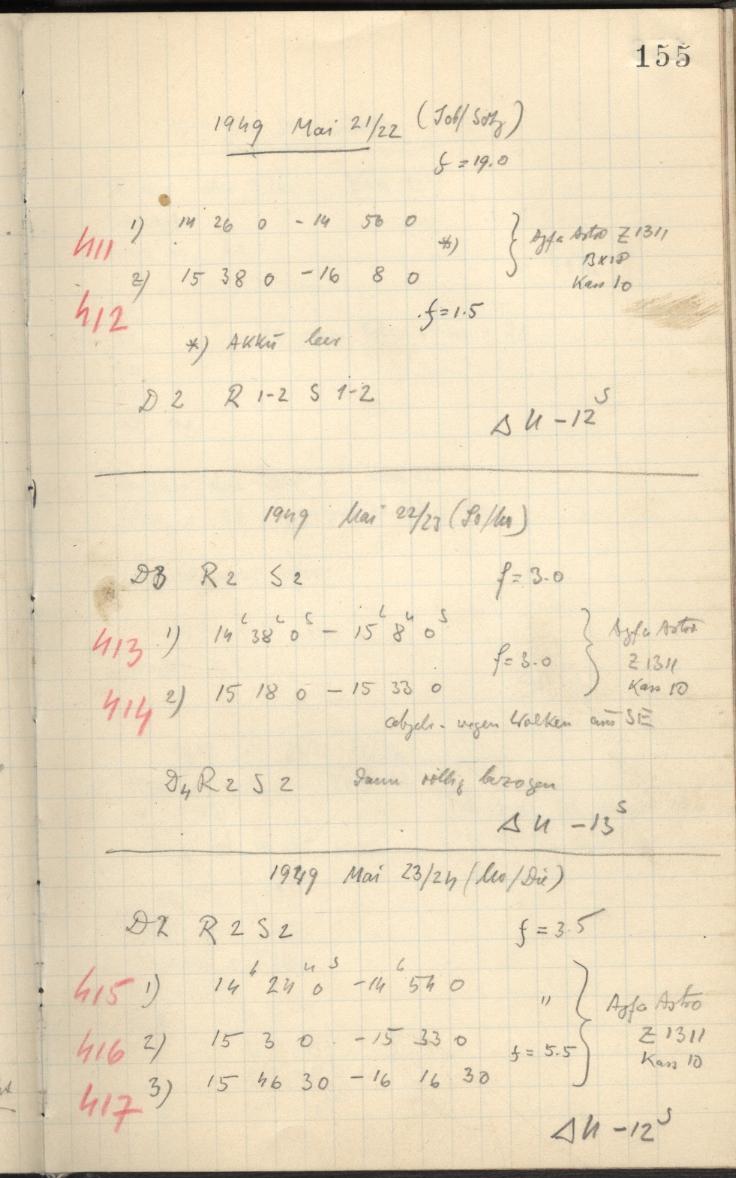 155
1949 Mai 21/22 (Sob/Sotg)
f = 19.0
411 1) 14 26 0 - 14 56 0
*)
} Agfa Astro Z 1311
412 2) 15 38 0 - 16 8 0
Kass 10
f = 1.5
*) Akku leer
D 2 R 1-2 S 1-2
Δ U - 12 s
1949 Mai 22/23 (So/Mo)
D3 R 2 S 2 f = 3.0
413 1) 14 h 38 m 0 s - 15 h 8 m 0 s
f = 3.0
} Agfa Astro
Z 1311
Kass 10
414 2) 15 18 0 - 15 33 0
abgebr. wegen Wolken aus SE
D4 R 2 S 2 Dann völlig bezogen
Δ U - 13 s
1949 Mai 23/24 (Mo/Die)
D2 R 2 S 2 f = 3.5
415 1) 14 h 24 m 0 s - 14 h 54 0
"
} Agfa Astro
Z 1311
Kass 10
416 2) 15 3 0 - 15 33 0
f = 5.5
417 3) 15 46 30 - 16 16 30
Δ U - 12 s